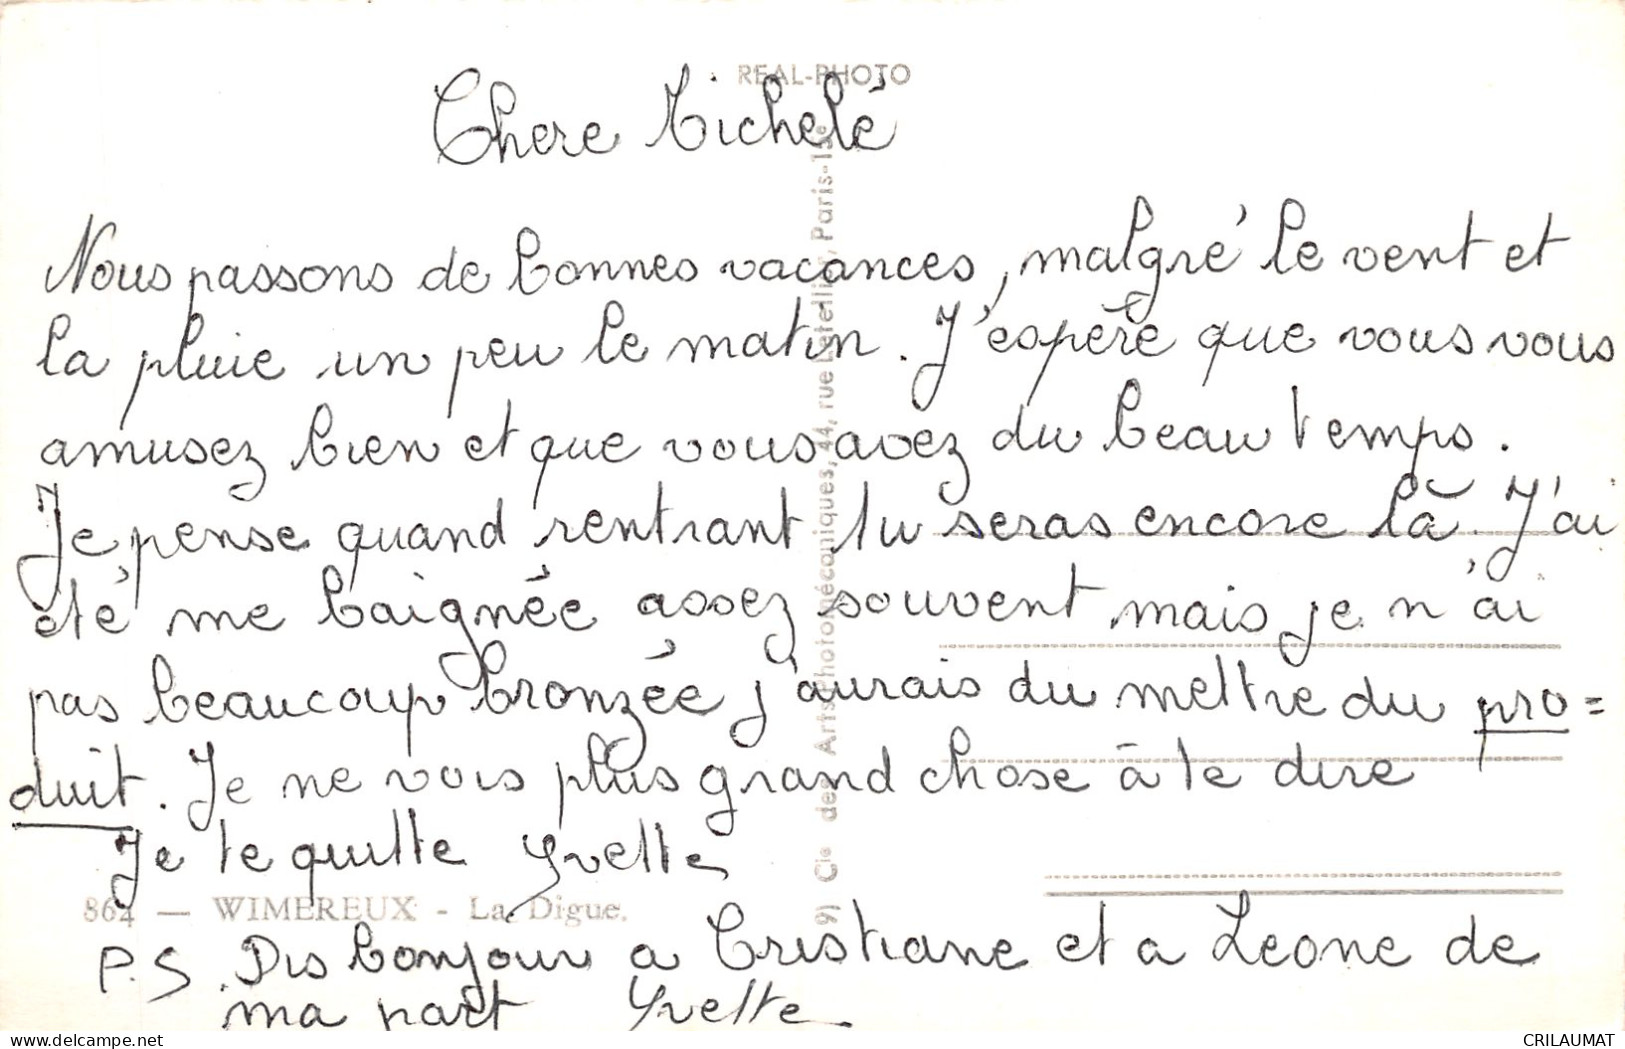 REAL-PHOTO
Chere Michelé
Nous passons de bonnes vacances, malgré le vent et
la pluie un peu le matin. J'espère que vous vous
amusez bien et que vous avez du beau temps.
Je pense quand rentrant tu seras encore là. J'ai
été me baignée assez souvent mais je n'ai
pas beaucoup bronzée j'aurais du mettre du pro=
duit. Je ne vois plus grand chose à te dire
Je te quitte Yvette
864 — WIMEREUX - La Digue.
P.S Dis bonjour a Cristiane et a Leone de
ma part Yvette
Cie des Arts Photomécaniques, 44, rue Letellier, Paris-15e
www.delcampe.net
CRILAUMAT